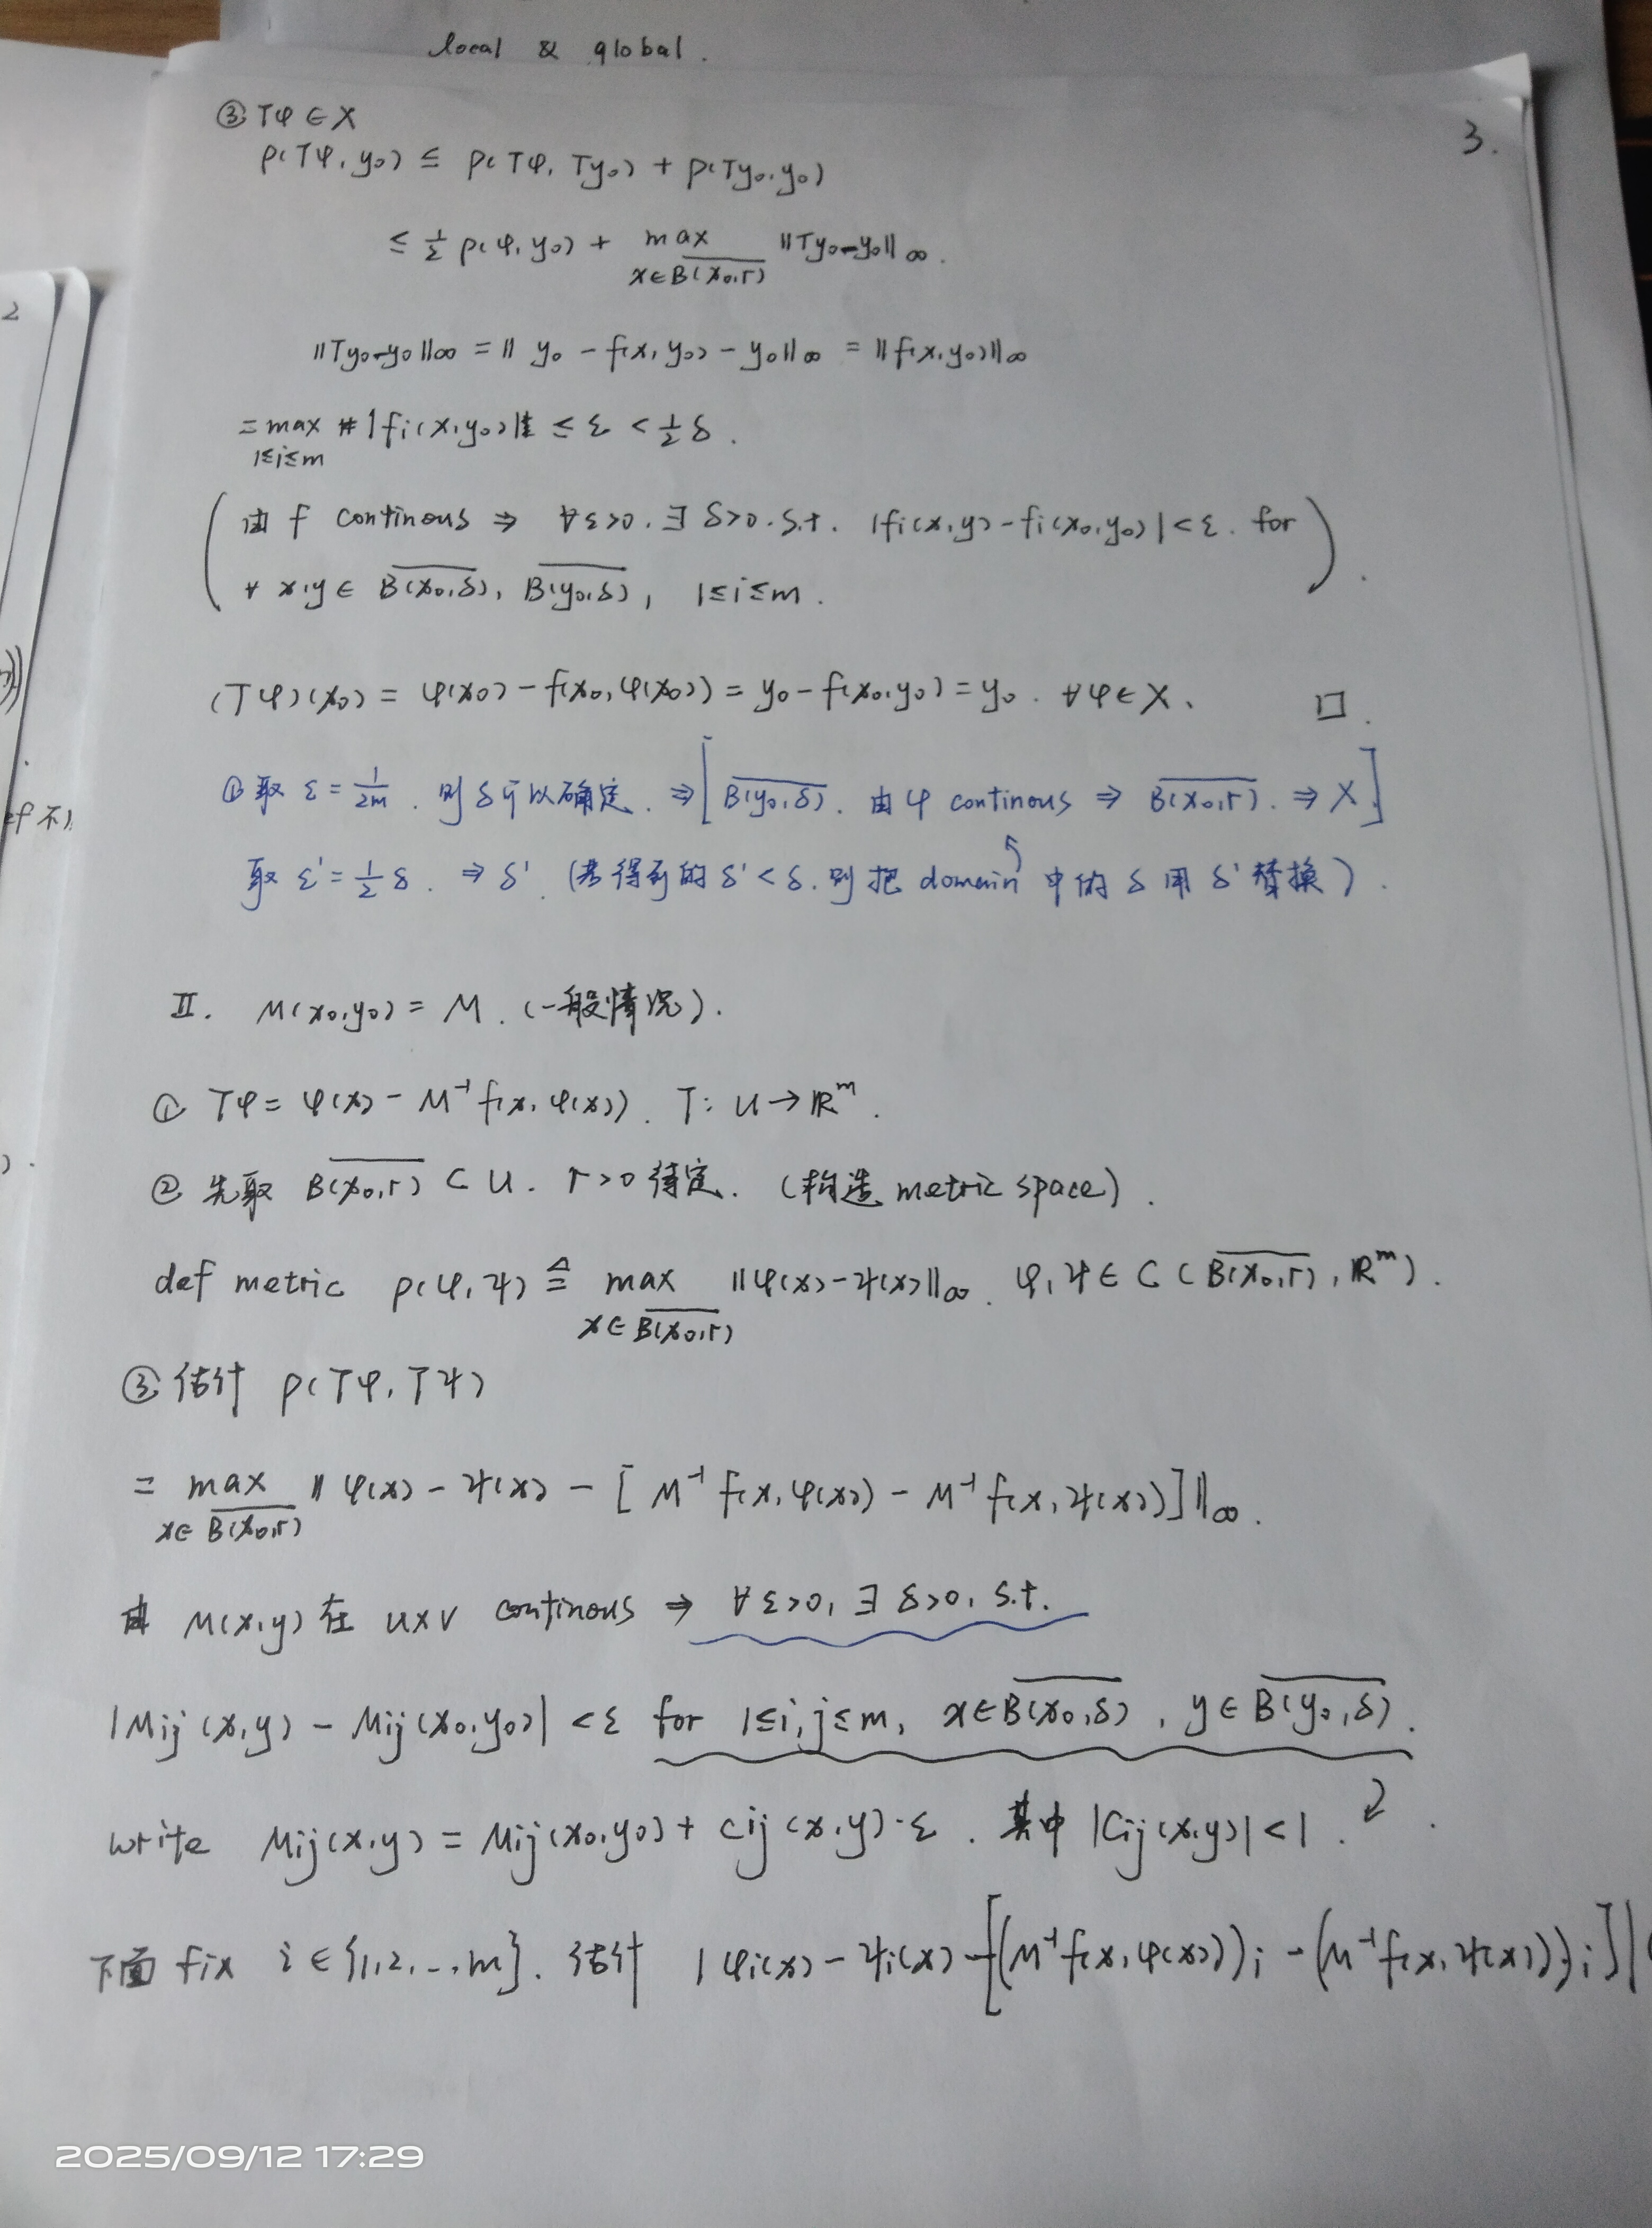 local & global.
3.
③ Tφ ∈ X
ρ(Tφ, y₀) ≤ ρ(Tφ, Ty₀) + ρ(Ty₀, y₀)
≤ ½ ρ(φ, y₀) + max ‖Ty₀-y₀‖∞.
x∈B̅(̅x̅₀̅,̅r̅)̅
‖Ty₀-y₀‖∞ = ‖ y₀ - f(x, y₀) - y₀‖∞ = ‖f(x, y₀)‖∞
= max |fi(x, y₀)| ≤ ε < ½ δ.
1≤i≤m
(由 f continous ⇒ ∀ε>0. ∃ δ>0. s.t. |fi(x,y) - fi(x₀,y₀)| < ε. for
∀ x,y ∈ B̅(̅x̅₀̅,̅δ̅)̅, B̅(̅y̅₀̅,̅δ̅)̅, 1≤i≤m.)
(Tφ)(x₀) = φ(x₀) - f(x₀, φ(x₀)) = y₀ - f(x₀,y₀) = y₀. ∀φ∈X、 □.
① 取 ε = 1/2m. 则 δ 可以确定. ⇒ [B̅(̅y̅₀̅,̅δ̅)̅. 由 φ continous ⇒ B̅(̅x̅₀̅,̅r̅)̅. ⇒ X.]
取 ε' = ½ δ. ⇒ δ'. (若得到的 δ' < δ. 则把 domain 中的 δ 用 δ' 替换).
Ⅱ. M(x₀,y₀) = M. (一般情况).
① Tφ = φ(x) - M⁻¹ f(x, φ(x)). T: U → ℝᵐ.
② 先取 B̅(̅x̅₀̅,̅r̅)̅ ⊂ U. r>0 待定. (构造 metric space).
def metric ρ(φ, ψ) ≜ max ‖φ(x) - ψ(x)‖∞. φ, ψ ∈ C(B̅(̅x̅₀̅,̅r̅)̅, ℝᵐ).
x∈B̅(̅x̅₀̅,̅r̅)̅
③ 估计 ρ(Tφ, Tψ)
= max ‖ φ(x) - ψ(x) - [ M⁻¹ f(x, φ(x)) - M⁻¹ f(x, ψ(x))]‖∞.
x∈B̅(̅x̅₀̅,̅r̅)̅
由 M(x,y) 在 U×V continous ⇒ ∀ε>0, ∃ δ>0, s.t.
|Mij(x,y) - Mij(x₀,y₀)| < ε for 1≤i,j≤m, x∈B̅(̅x̅₀̅,̅δ̅)̅, y∈B̅(̅y̅₀̅,̅δ̅)̅.
write Mij(x,y) = Mij(x₀,y₀) + cij(x,y)·ε. 其中 |Cij(x,y)| < 1.
下面 fix i∈{1,2,...,m}. 估计 | φi(x) - ψi(x) - [(M⁻¹f(x, φ(x)))i - (M⁻¹f(x, ψ(x)))i]|
2
ef 不
2025/09/12 17:29